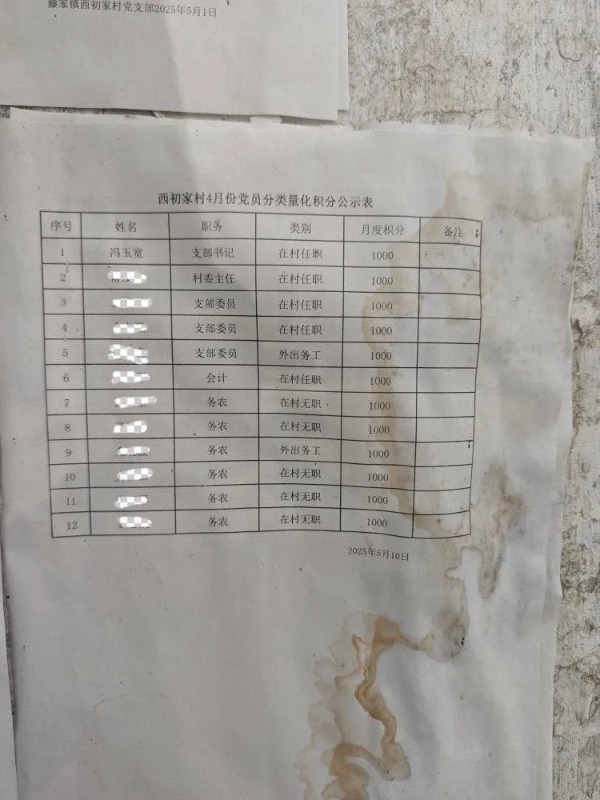 滕家镇西初家村党支部2025年5月1日
西初家村4月份党员分类量化积分公示表
序号 姓名 职务 类别 月度积分 备注
1 冯玉宽 支部书记 在村任职 1000
2 村委主任 在村任职 1000
3 支部委员 在村任职 1000
4 支部委员 在村任职 1000
5 支部委员 外出务工 1000
6 会计 在村任职 1000
7 务农 在村无职 1000
8 务农 在村无职 1000
9 务农 外出务工 1000
10 务农 在村无职 1000
11 务农 在村无职 1000
12 务农 在村无职 1000
2025年5月10日